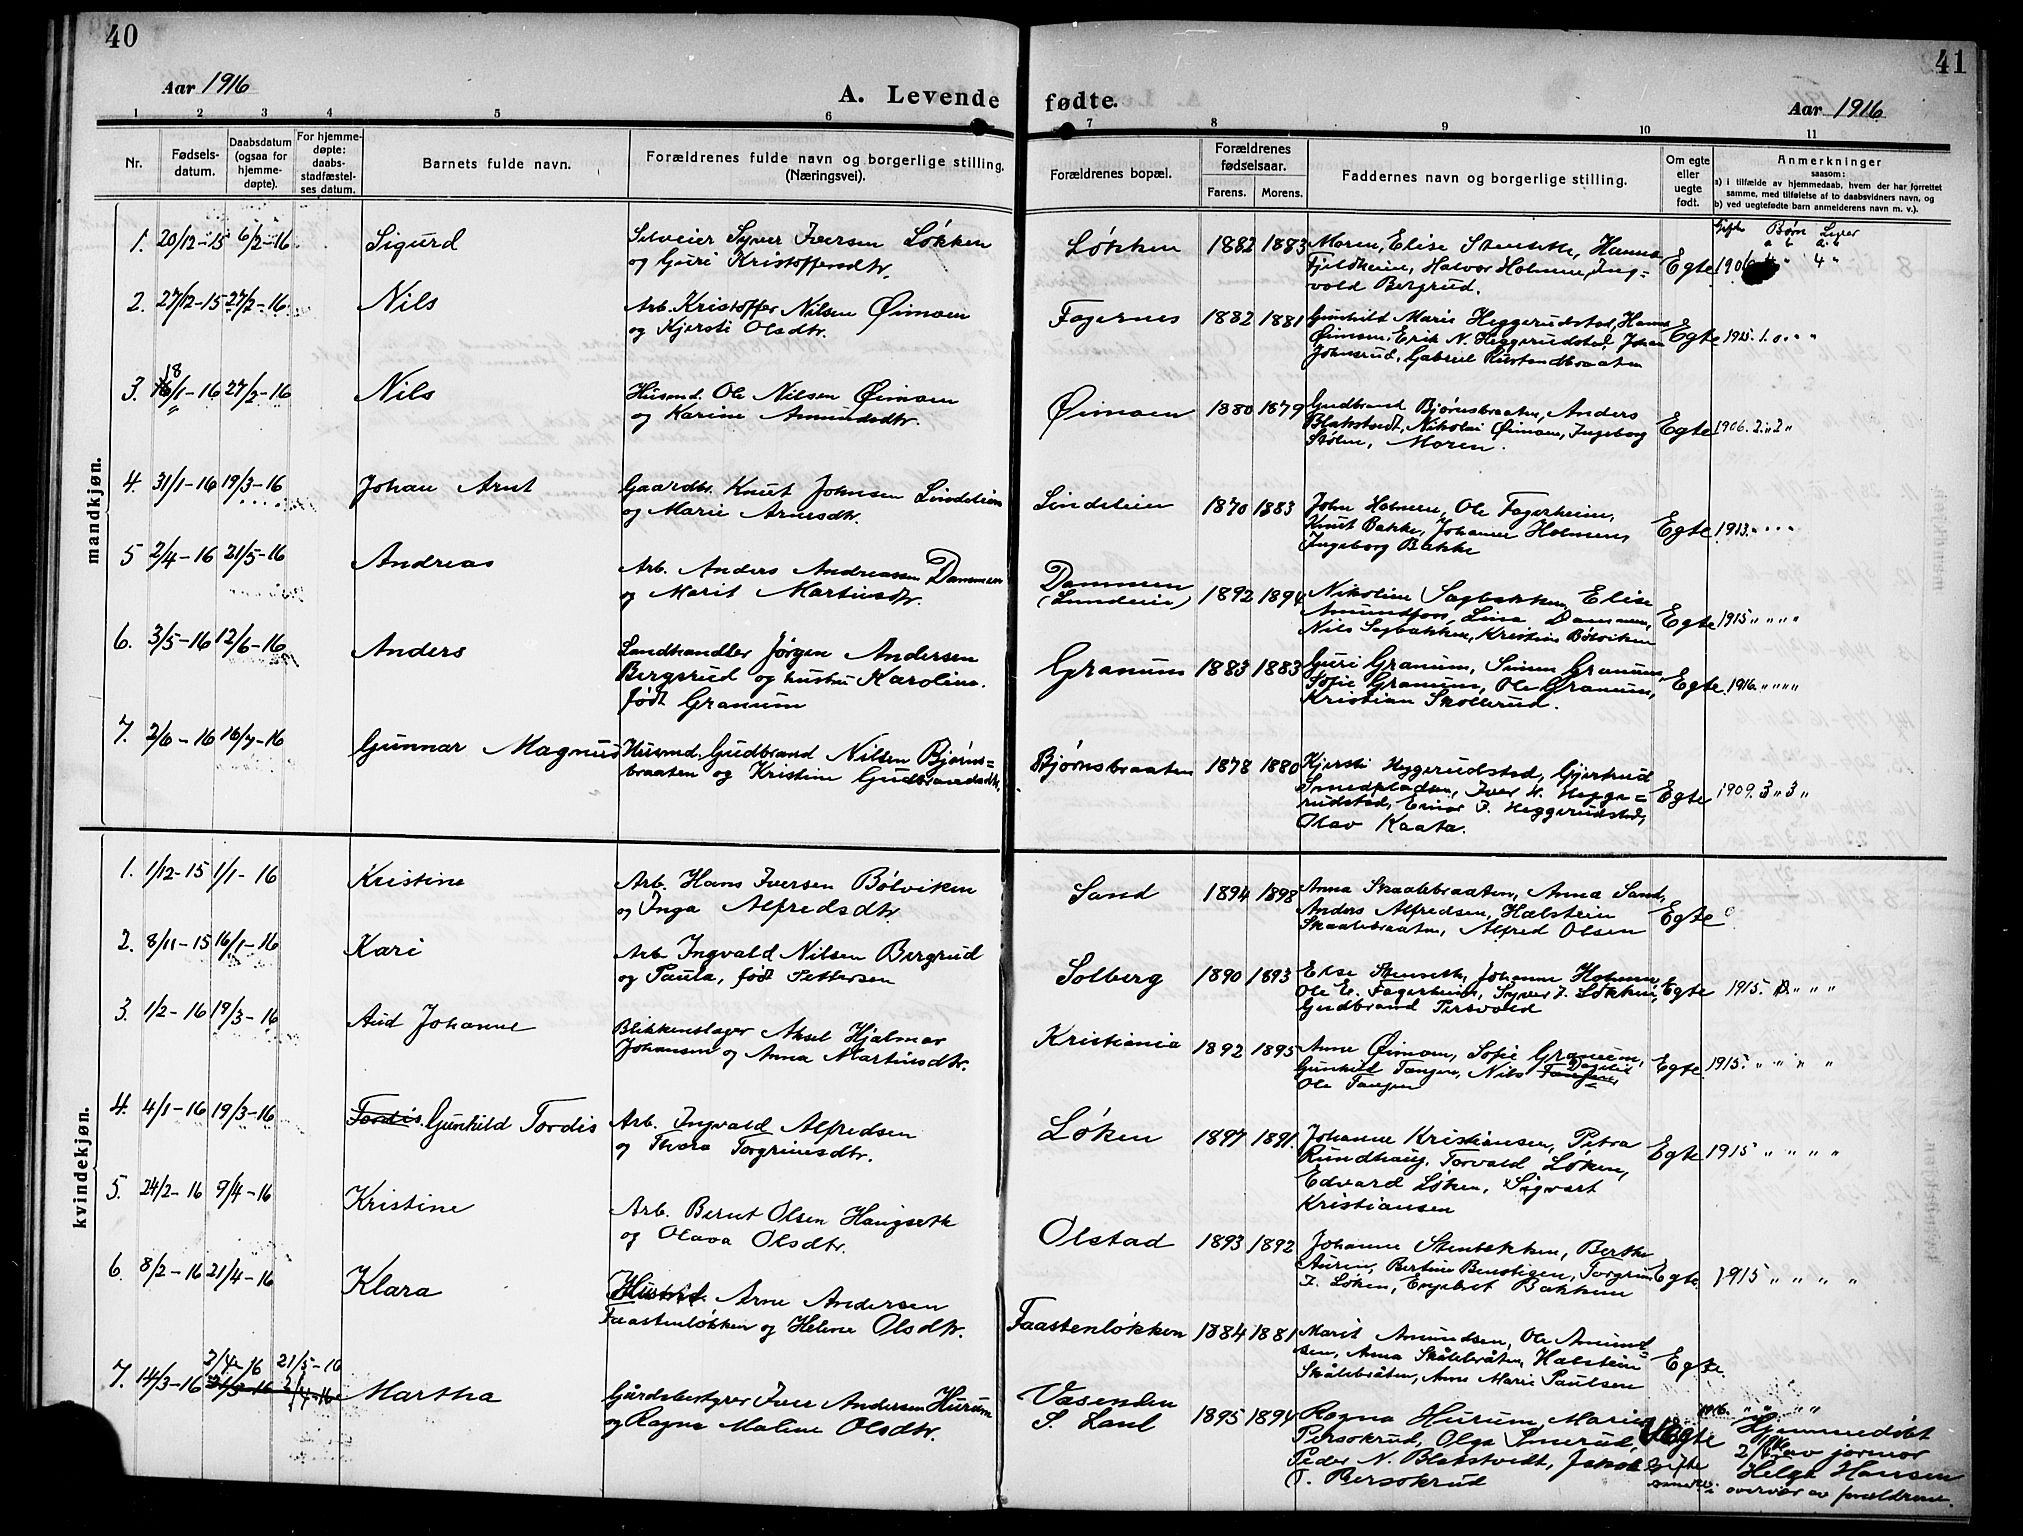 40
Aar 1916
A. Levende
1 2 3 4 5 6
Nr.
Fødsels-
datum.
Daabsdatum
(ogsaa for
hjemme-
døpte).
For hjemme-
døpte:
daabs-
stadfæstel-
ses datum.
Barnets fulde navn.
Forældrenes fulde navn og borgerlige stilling.
(Næringsvei).
mandkjøn.
1. 20/12-15 6/2-16 Sigurd
Selveier Syver Iversen Løkken
og Guri Kristoffersdtr.
2. 27/12-15 27/2-16 Nils
Arb. Kristoffer Nilsen Øimoen
og Kjersti Olsdtr.
3. 18/1-16 27/2-16 Nils
Husmd. Ole Nilsen Øimoen
og Karine Amundsdtr.
4. 31/1-16 19/3-16 Johan Arnt
Gaardbr. Knut Johnsen Lindelien
og Marie Arnesdtr.
5 2/4-16 21/5-16 Andreas
Arb. Anders Andreassen Dammen
og Marit Martinsdtr.
6. 3/5-16 12/6-16 Anders
Landhandler Jørgen Andersen
Bergsrud og hustru Karoline
født Granum
7. 2/6-16 16/7-16 Gunnar Magnus
Husmd. Gudbrand Nilsen Bjørns=
braaten og Kristine Gudbrandsdtr.
kvindekjøn.
1. 1/12-15 1/1-16 Kristine
Arb. Hans Iversen Bølviken
og Inga Alfredsdtr.
2. 8/11-15 16/1-16 Kari
Arb Ingvald Nilsen Bergrud
og Paula, født Pettersen
3. 1/2-16 19/3-16 Aud Johanne
Blikkenslager Aksel Hjalmar
Johansen og Anna Martinsdtr.
4. 4/1-16 19/3-16 Tordis. Gunhild Tordis
Arb. Ingvald Alfredsen
og Thora Torgrimsdtr.
5. 24/2-16 9/4-16 Kristine
Arb. Bernt Olsen Haugseth
og Olava Olsdtr.
6. 8/2-16 21/4-16 Klara
Husmd. Arne Andersen
Faastenløkken og Helene Olsdtr.
2/4-16 21/5-16
7. 14/3-16 Martha
Gårdsbestyrer Iver Andersen Hurum
og Ragna Maline Olsdtr.
41
fødte.
Aar 1916
7 8 9 10 11
Forældrenes bopæl.
Forældrenes
fødselsaar.
Farens. Morens.
Faddernes navn og borgerlige stilling.
Om egte
eller
uegte
født.
Anmerkninger
saasom:
a) i tilfælde av hjemmedaab, hvem der har forrettet
samme, med tilføielse af to daabsvidners navn, og
b) ved uegtefødte barn anmelderens navn m. v.).
Gifte Børn Lever
a b a b
Løkken 1882 1883 Egte 1906 4 " 4 "
Maren, Elise Stenseth, Hanna
Fjeldheim, Halvor Holmen, Ing-
vold Bergrud.
Fagernes 1882 1881 Egte 1915. 1. 0 " "
Gunhild Marie Heggerudstad, Hanna
Øimoen, Erik N. Heggerudstad, Johan
Johnsrud, Gabriel Rustandbraaten
Øimoen 1880 1879 Egte 1906. 2 " 2 "
Gudbrand Bjørnsbraaten, Anders
Blakstvedt, Nikolai Øimoen, Ingeborg
Stølen, Maren.
Lindelien 1870 1883 Egte 1913. " " " "
John Holmen, Ole Fagerheim,
Knut Bakke, Johanne Holmen,
Ingeborg Bakke
Dammen
(Lundeie) 1892 1894 Egte 1915 " " " "
Nikoline Sagbakken, Elise
Amundfoss, Lina Dammen,
Nils Sagbakken, Kristian Bølviken
Granum 1883 1883 Egte. 1916. " " " "
Guri Granum, Simen Granum
Sofie Granum, Ole Granum,
Kristian Skollerud.
Bjørnsbraaten 1878 1880 Egte 1909. 3 " 3 "
Kjersti Heggerudstad, Gjertrud
Smedpladsen, Iver N. Hegge=
rudstad, Einar I. Heggerudstad,
Olav Kaata.
Sand 1894 1898 Egte 0
Anna Skaalebraaten, Anna Sand,
Anders Alfredsen, Halstein
Skaalebraaten, Alfred Olsen
Solberg 1890 1893 Egte 1915. " " "
Else Stenseth, Johanne Holmen,
Ole E. Fagerheim, Syver I. Løkken,
Gudbrand Persvold
Kristiania 1892 1895 Egte 1915. " " " "
Anne Øimoen, Sofie Granum,
Gunhild Tangen, Nils Tangen
Ole Tangen
Løken 1897 1891. Egte 1915 " " " "
Johanne Kristiansen, Petra
Rundhaug, Torvald Løken,
Edvard Løken, Sigvart
Kristiansen
Olstad 1893 1892 Egte. 1915 " " " "
Johanne Stenbakken, Berthe
Auren, Bertine Benstigen, Torgrim
T. Løken, Engebret Bakken
Faastenløkken 1884 1881 Egte.
Marit Amundsen, Ole Amund=
sen, Anna Skålebråten, Halstein
Skålebråten, Anne Marie Paulsen
Væsenden
S. Land 1895 1894 Egte 1916. " " " "
Ragna Hurum, Marie
Persokrud, Olga Smerud,
Peder N. Blakstvedt, Jakob
T. Bersokrud
Hjemmedøbt
2/4 av jormor
Helga Hansen
i overvær av forældrene.